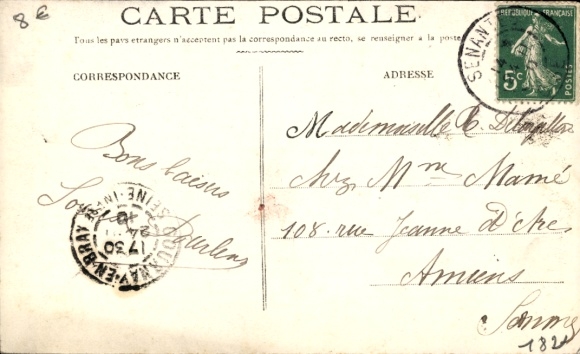 8 €
CARTE POSTALE
Tous les pays étrangers n'acceptent pas la correspondance au recto, se renseigner à la poste
CORRESPONDANCE
ADRESSE
REPUBLIQUE FRANÇAISE
5c
POSTES
SENANT
Mademoiselle
Chez Mme Mamé
108 rue Jeanne d'Arc
Amiens
Somme
Bons baisers
GOURNAY-EN-BRAY
SEINE-INFRE
1730
24
10
182